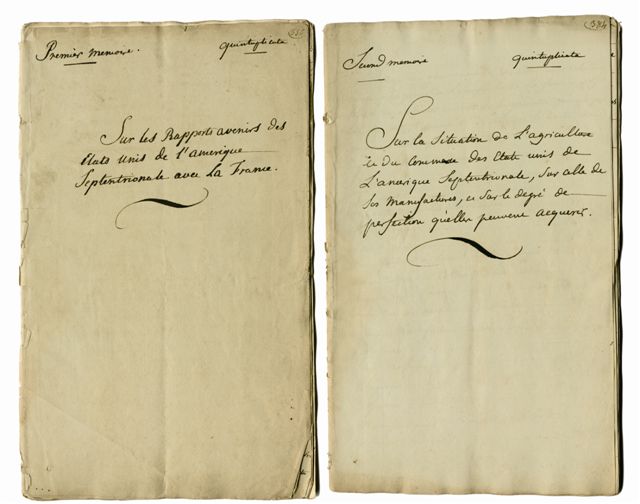 Premier memoire.
quintuplicata
Sur les Rapports avenirs des
états unis de l'amerique
Septentrionale avec La France.
384
Second memoire
quintuplicata
Sur la Situation de L'agriculture
et du Commerce des états unis de
L'amerique Septentrionale, Sur celle de
Ses manufactures, et Sur le degré de
perfection qu'elles peuvent acquerir.